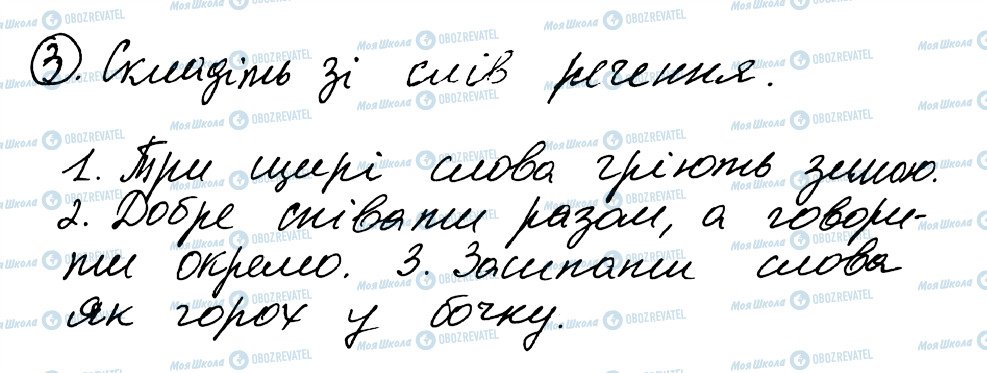 3. Складіть зі слів речення.
1. Три щирі слова гріють зимою.
2. Добре співати разом, а говори-
ти окремо. 3. Засипати слова
як горох у бочку.